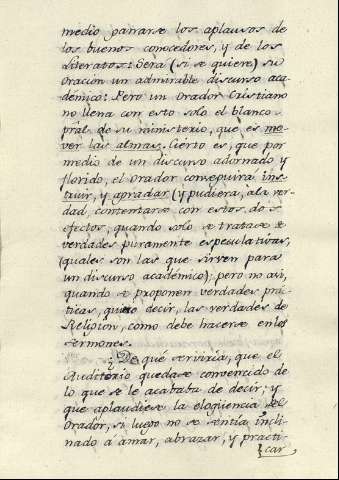 medio parrarse los aplausos de
los buenos conocedores, y de los
Literatos: Sera (si se quiere) su
oracion un admirable discurso aca-
démico: Pero un Orador Cristiano
no llena con esto solo el blanco
pral de su ministerio, que es mo-
ver las almas. Ciérto es, que por
medio de un discurso adornado y
florido, el orador conseguirá ins-
truir, y agradar (y pudiera, á la ver-
dad, contentarse con estos dos
efectos, quando solo se tratase de
verdades puramente especulativas,
(quales son las que sirven para
un discurso académico); pero no asi,
quando se proponen verdades prác-
ticas, quiero decir, las verdades de
Religion, como debe hacerse en los
sermones.
¿De qué serviria, que el
Auditorio quedase convencido de
lo que se le acababa de decir, y
que aplaudiese la eloqüencia del
Orador, si luego no se sentia incli-
nado á amar, abrazar, y practi-
car